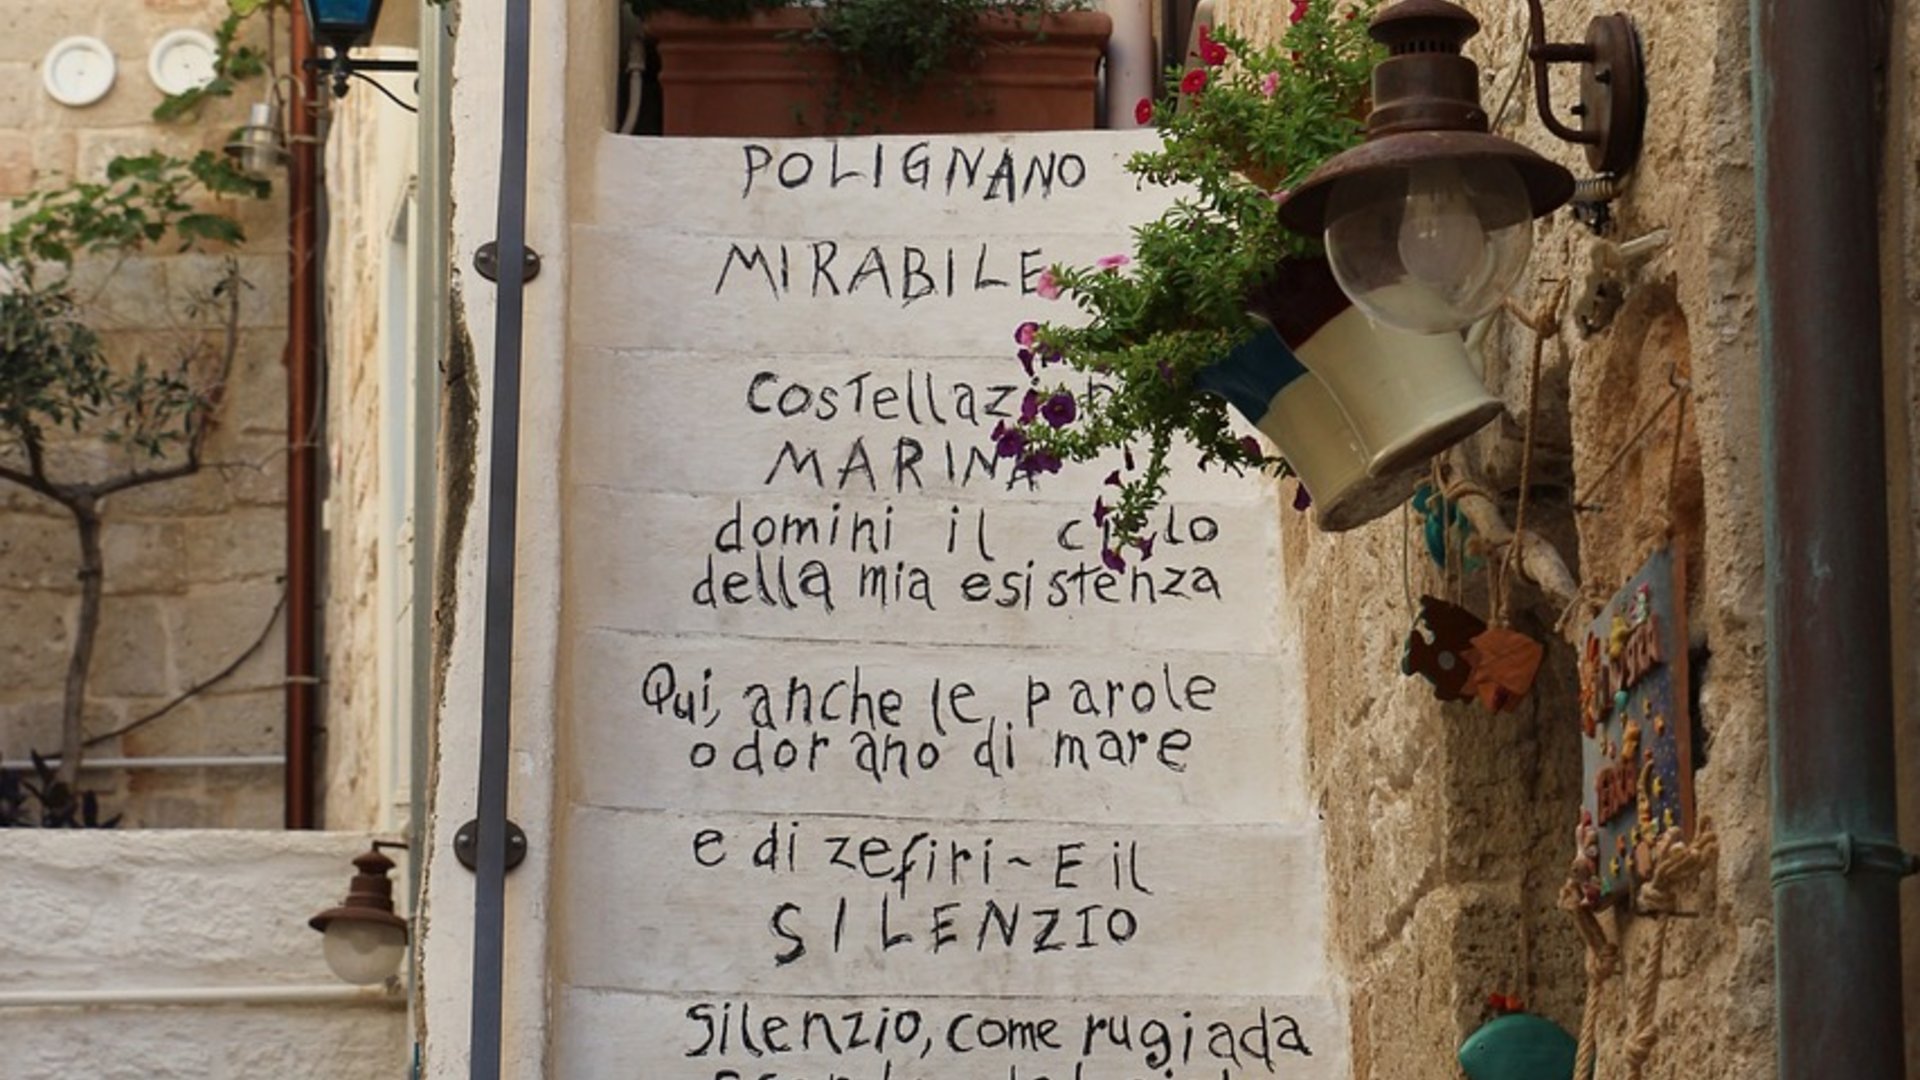 POLIGNANO
MIRABILE
COSTellazi
MARINA
domini il cielo
della mia esistenza
Qui, anche le parole
odorano di mare
e di zefiri~ E il
SILENZIO
Silenzio, come rugiada